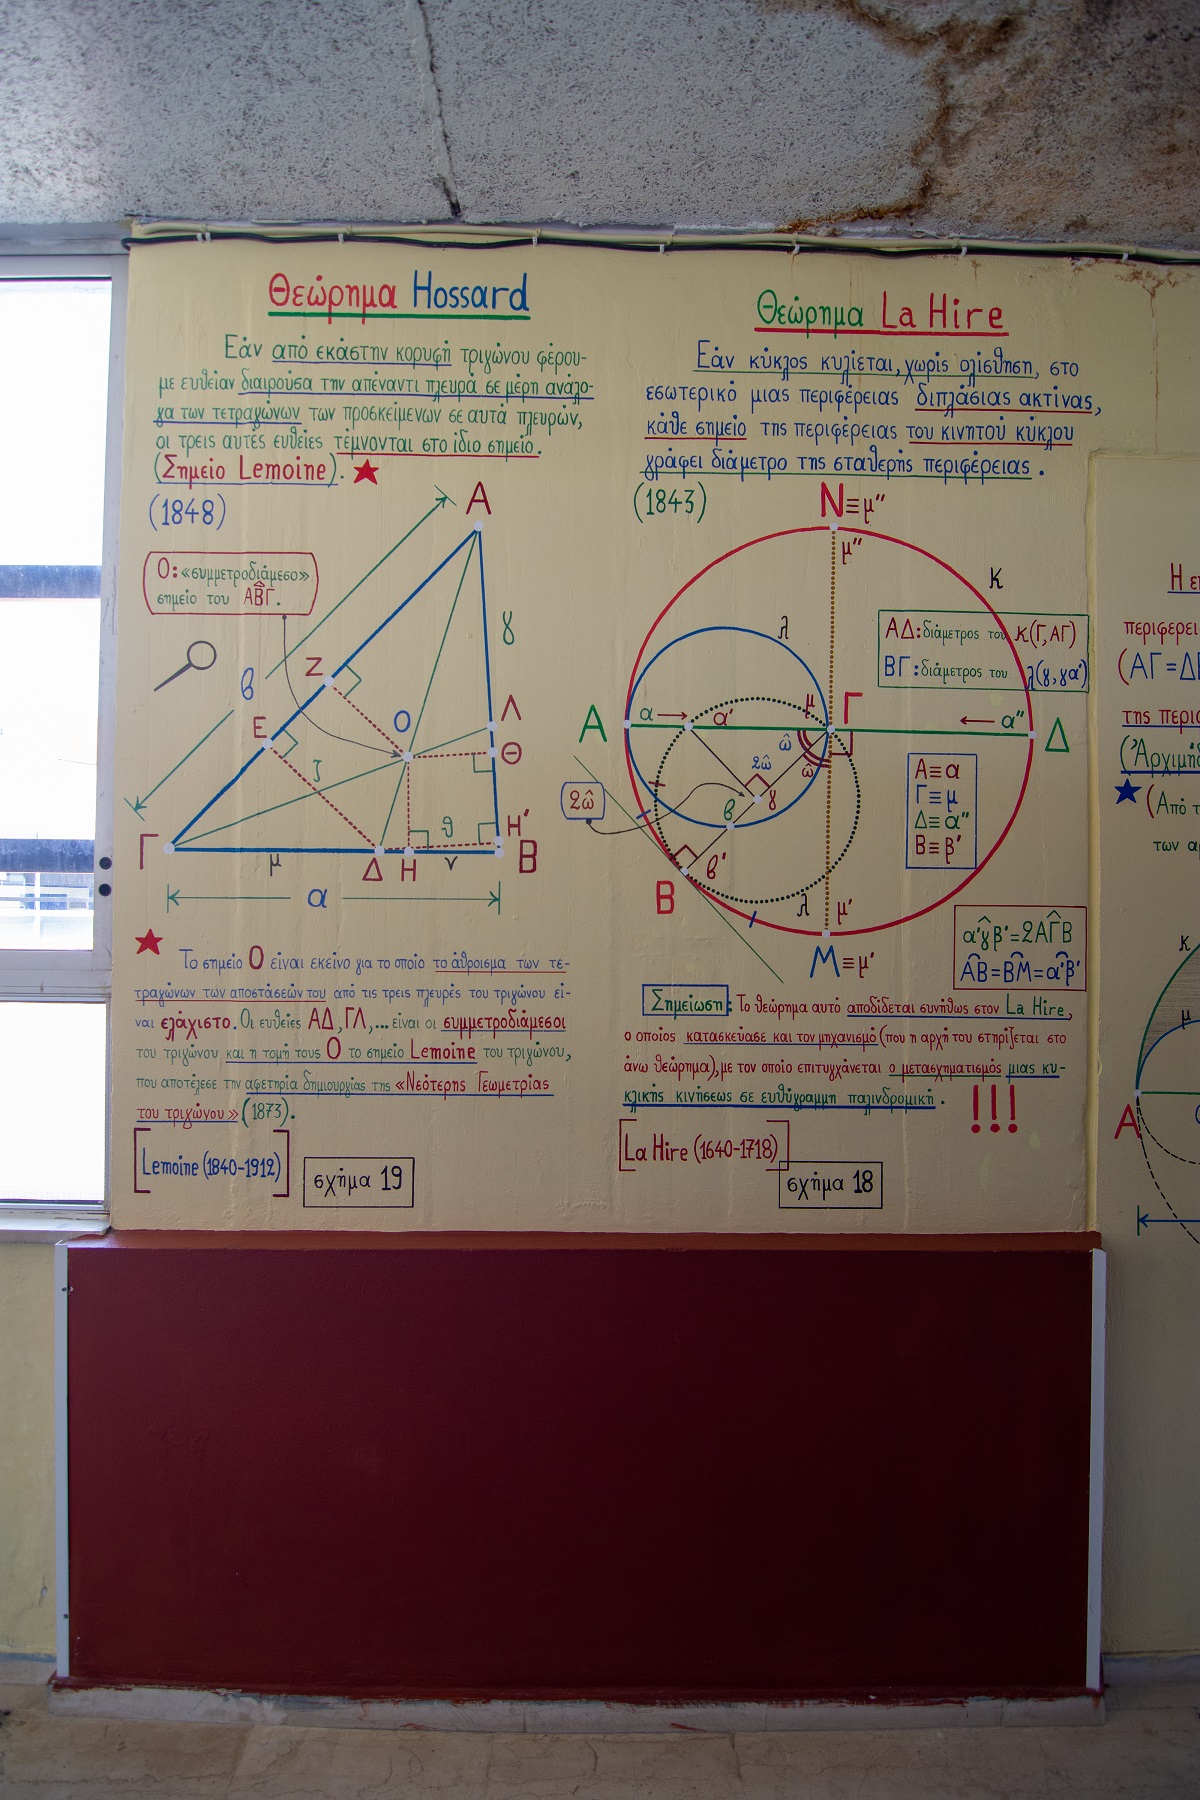 Θεώρημα Hossard
Εάν από εκάστην κορυφή τριγώνου φέρου-
με ευθείαν διαιρούσα την απέναντι πλευρά σε μέρη ανάλο-
γα των τετραγώνων των προσκείμενων σε αυτά πλευρών,
οι τρεις αυτές ευθείες τέμνονται στο ίδιο σημείο.
(Σημείο Lemoine). ★
(1848)
Ο: «συμμετροδιάμεσο»
σημείο του ΑΒ̂Γ.
Α
β
γ
Ζ
Ε
Ο
Λ
Θ
ζ
θ
Η'
Γ
μ
Δ
Η
ν
Β
α
★ Το σημείο Ο είναι εκείνο για το οποίο το άθροισμα των τε-
τραγώνων των αποστάσεών του από τις τρεις πλευρές του τριγώνου εί-
ναι ελάχιστο. Οι ευθείες ΑΔ, ΓΛ,... είναι οι συμμετροδιάμεσοι
του τριγώνου και η τομή τους Ο το σημείο Lemoine του τριγώνου,
που αποτέλεσε την αφετηρία δημιουργίας της «Νεότερης Γεωμετρίας
του τριγώνου» (1873).
[Lemoine (1840-1912)]
σχήμα 19
Θεώρημα La Hire
Εάν κύκλος κυλίεται, χωρίς ολίσθηση, στο
εσωτερικό μιας περιφέρειας διπλάσιας ακτίνας,
κάθε σημείο της περιφέρειας του κινητού κύκλου
γράφει διάμετρο της σταθερής περιφέρειας.
(1843)
Ν≡μ''
μ''
κ
λ
ΑΔ: διάμετρος του κ(Γ,ΑΓ)
ΒΓ: διάμετρος του λ(γ,γα')
Α
α
α'
μ
Γ
α''
Δ
ω̂
2ω̂
ω̂
2ω̂
γ
β
β'
Β
λ
μ'
Μ≡μ'
Α≡α
Γ≡μ
Δ≡α''
Β≡β'
α'γ̂β'=2ΑΓ̂Β
ΑΒ=ΒΜ=α'β'
Σημείωση: Το θεώρημα αυτό αποδίδεται συνήθως στον La Hire,
ο οποίος κατασκεύασε και τον μηχανισμό (που η αρχή του στηρίζεται στο
άνω θεώρημα), με τον οποίο επιτυγχάνεται ο μετασχηματισμός μιας κυ-
κλικής κινήσεως σε ευθύγραμμη παλινδρομική. !!!
[La Hire (1640-1718)]
σχήμα 18
Η επ
περιφερει
(ΑΓ=ΔΒ
της περις
(Άρχιμήδ
★ (Από τ
των αρ
κ
μ
Α